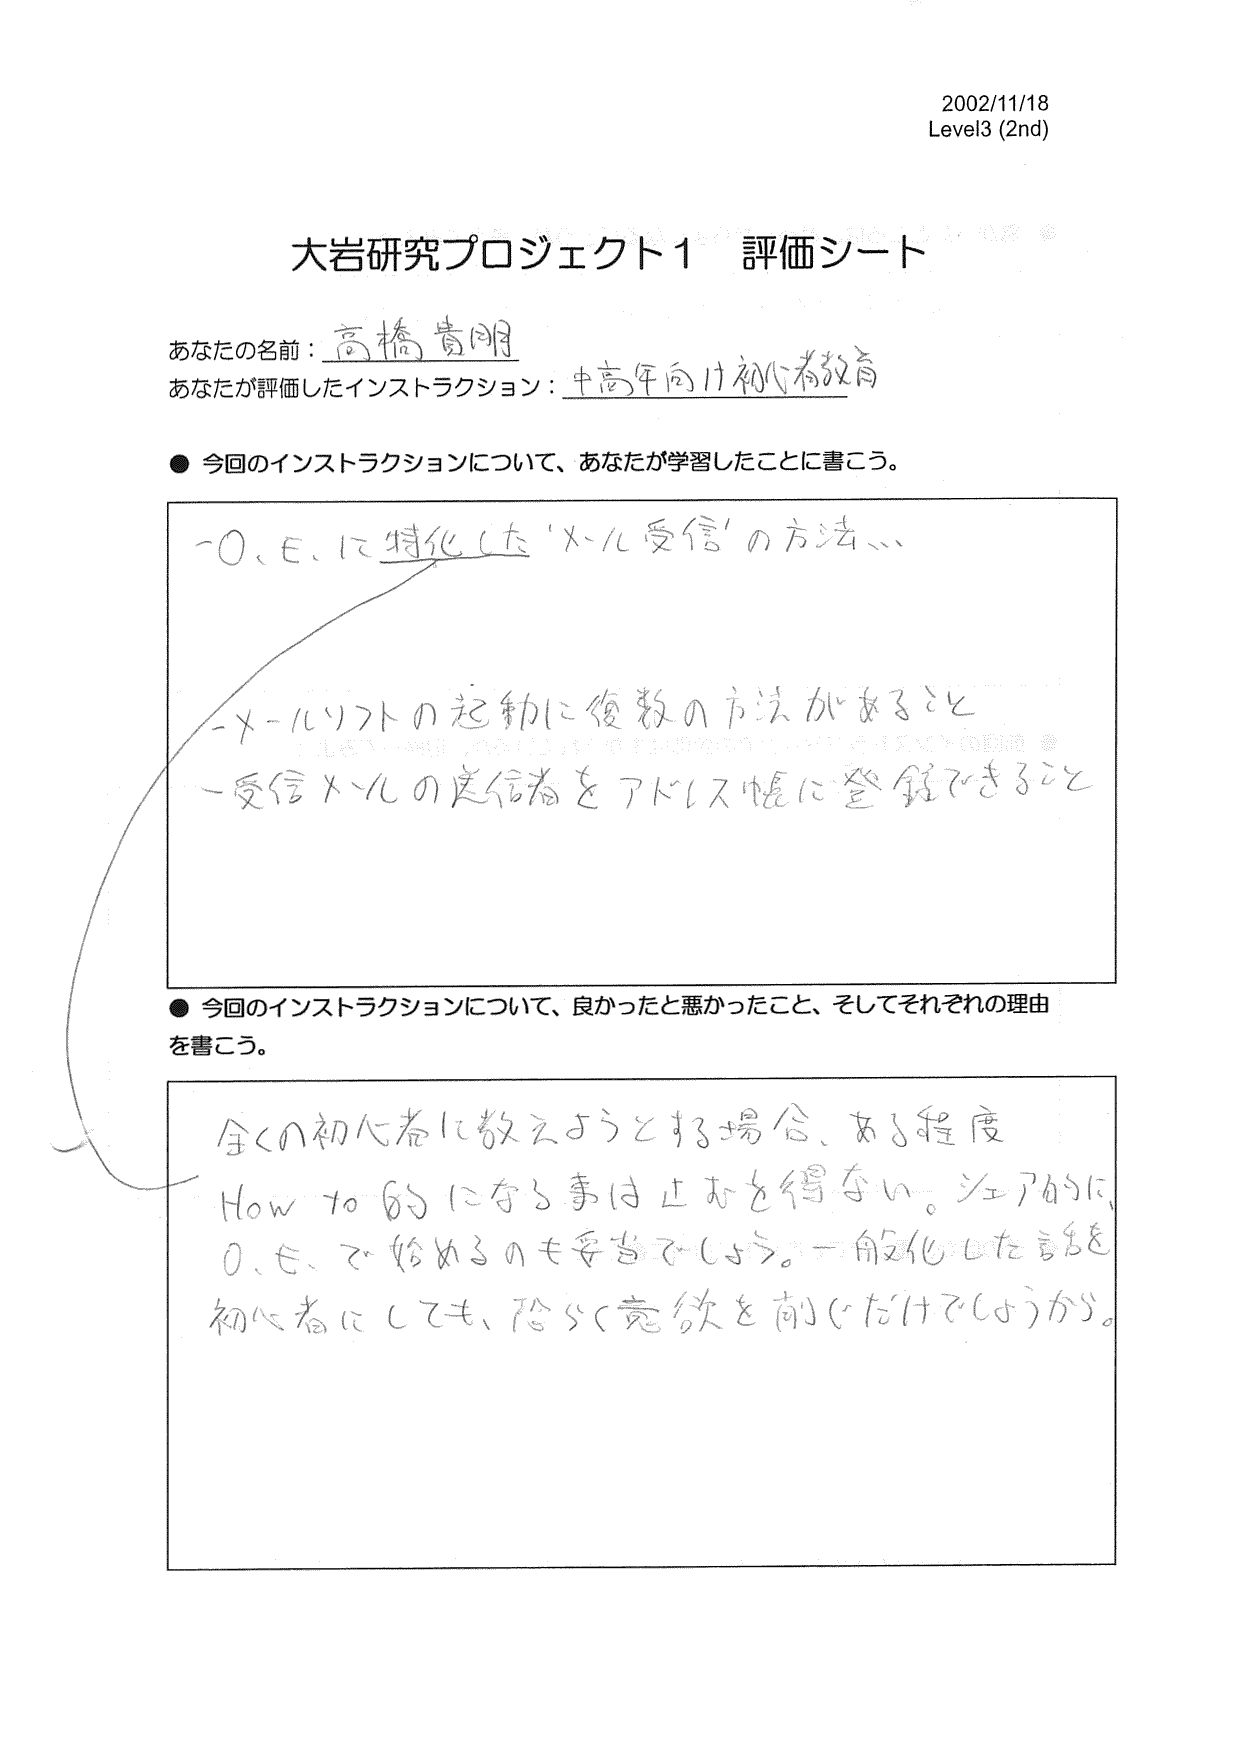 2002/11/18
Level3 (2nd)
大岩研究プロジェクト1　評価シート
あなたの名前：高橋貴明
あなたが評価したインストラクション：中高年向け初心者教育
● 今回のインストラクションについて、あなたが学習したことに書こう。
-O.E.に特化した'メール受信'の方法...
-メールソフトの起動に複数の方法があること
-受信メールの送信者をアドレス帳に登録できること
● 今回のインストラクションについて、良かったと悪かったこと、そしてそれぞれの理由
を書こう。
全くの初心者に教えようとする場合、ある程度
How to的になる事は止むを得ない。シェア的に、
O.E.で始めるのも妥当でしょう。一般化した話を
初心者にしても、恐らく意欲を削ぐだけでしょうから。